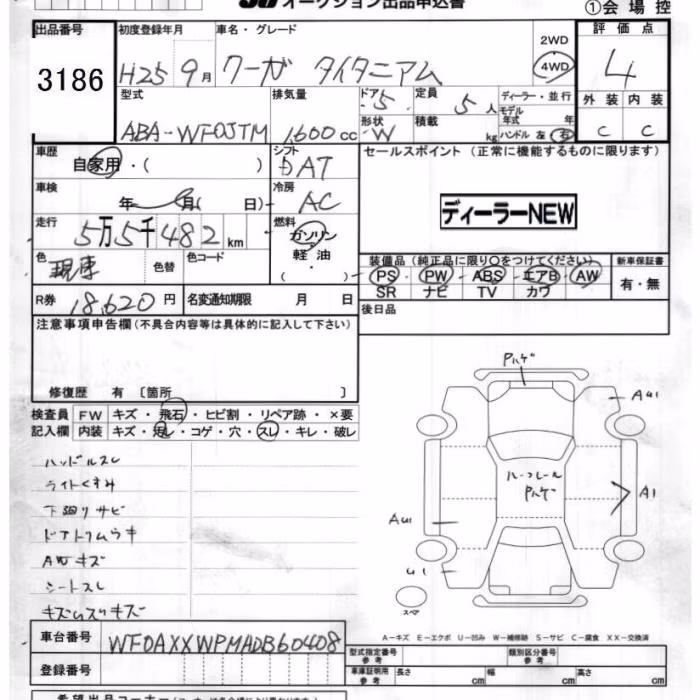 オークション出品申込書
①会場控
出品番号 初度登録年月 車名・グレード 2WD 4WD 評価点
3186 H25 9月 クーガ タイタニアム 4
型式 排気量 ドア 定員 ディーラー・並行 モデル 外装 内装
ABA-WF0JTM 1,600cc 5 5人 年式 年 C C
形状 W 積載 kg ハンドル 左 右
車歴 自家用・( ) シフト セールスポイント (正常に機能するものに限ります)
DAT
車検 年 月( 日) 冷房 AC
ディーラーNEW
走行 5万5千482km 燃料 ガソリン 軽油 ( )
色 色替 色コード
装備品 (純正品に限り○をつけてください) 新車保証書
PS PW ABS エアB AW 有・無
SR ナビ TV カワ
R券 18,620円 名変通知期限 月 日 後日品
注意事項申告欄 (不具合内容等は具体的に記入して下さい)
修復歴 有 〔箇所 〕
検査員 FW キズ・飛石・ヒビ割・リペア跡・×要
記入欄 内装 キズ・汚レ・コゲ・穴・スレ・キレ・破レ
ハンドルスレ
ライトくすみ
下廻リサビ
ドアトリムウキ
AWキズ
シートスレ
A1
スペア
A－キズ E－エクボ U－凹み W－補修跡 S－サビ C－腐食 XX－交換済
車台番号 WF0AXXWPMADB60408
型式指定番号 参考 類別区分番号 参考
登録番号 車庫証明用 参考 長さ cm 幅 cm 高さ cm
希望出品コーナー